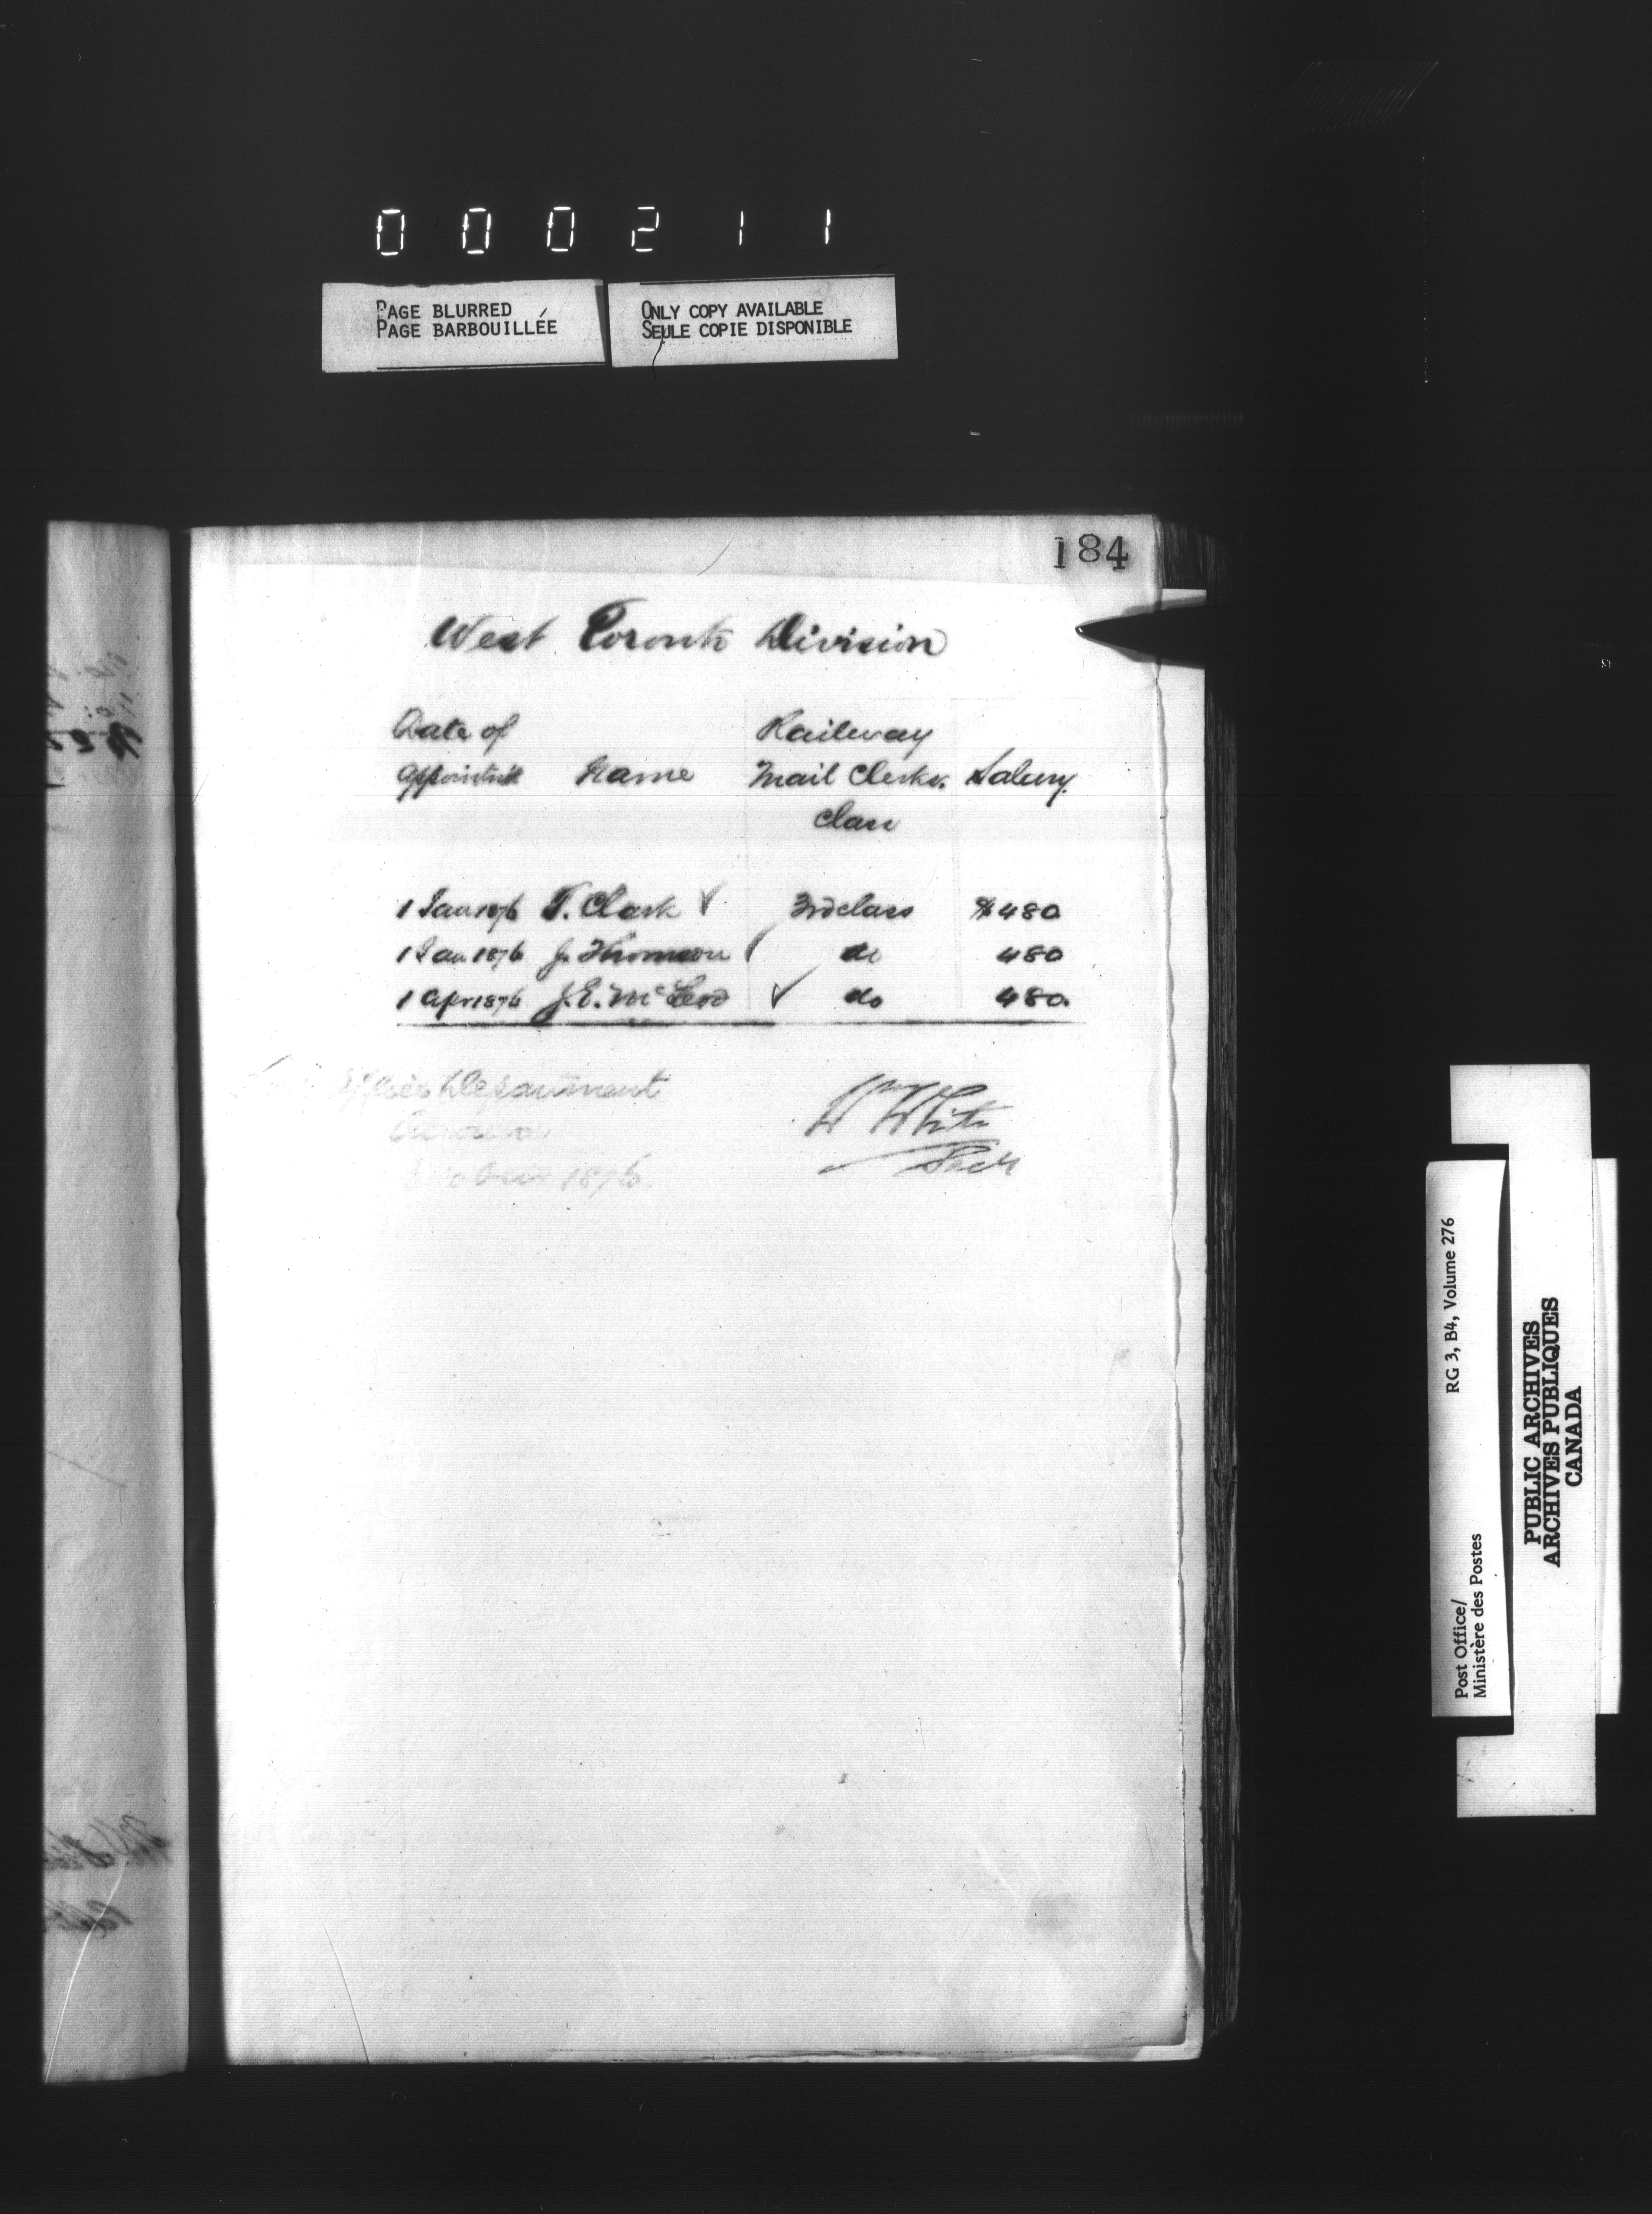 000211
PAGE BLURRED
PAGE BARBOUILLÉE
ONLY COPY AVAILABLE
SEULE COPIE DISPONIBLE
184
West Toronto Division
Date of Railway
appointm't Name Mail Clerks. Salary.
Class
1 Jan 1876 T. Clark ✓ 3rd class $480
1 Jan 1876 J. Thomson do 480
1 Apr 1876 J.E. McLeod ✓ do 480.
Office Department
W White
Secy
1876.
RG 3, B4, Volume 276
Post Office/
Ministère des Postes
PUBLIC ARCHIVES
ARCHIVES PUBLIQUES
CANADA